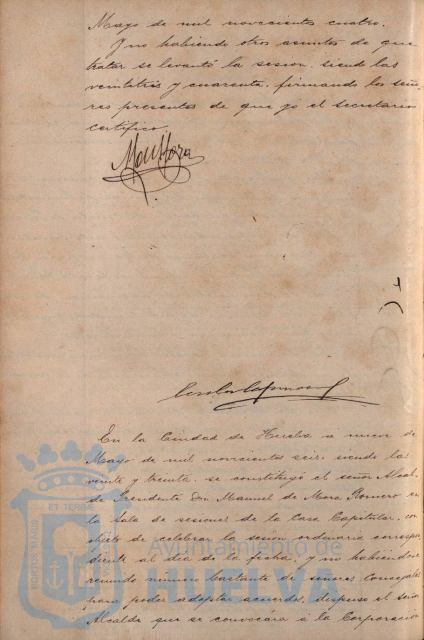 Mayo de mil novecientos cuatro.
Y no habiendo otros asuntos de que
tratar se levantó la sesion, siendo las
veintitrés y cuarenta, firmando los seño-
res presentes de que yo el secretario
certifico.
En la Ciudad de Huelva a nueve de
Mayo de mil novecientos seis, siendo las
veinte y treinta, se constituyó el señor Alcal-
de Presidente Don Manuel de Mora Romero en
la Sala de sesiones de la Casa Capitular, con
objeto de celebrar la sesion ordinaria correspon-
diente al dia de la fecha, y no habiendose
reunido número bastante de señores Concejales
para poder adoptar acuerdos, dispuso el señor
Alcalde que se convocára á la Corporacion
Ayuntamiento de
HUELVA
PORTUS MARIS ET TERRE